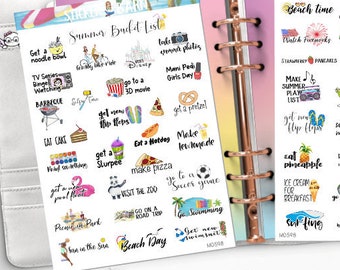 Summer Bucket List
get a
noodle bowl
take
summer photos
TV Series
Binge
Watching
go to a
3D movie
Mani Pedi
Girls Day
BARBECUE
get new
flip flops
get a
pretzel!
EAT CAKE
get a
Slurpee
Eat a Hotdog
Make
lemonade
make pizza
go to a
Soccer game
VISIT THE ZOO
Picnic in Park
GO ON A
ROAD TRIP
go Swimming
Fun in the Sun
Beach Day
Get new
swimsuit
M0598
Beach time
Watch Fireworks
STRAWBERRY PANCAKES
MAKE
SUMMER
PLAY LIST
get new
flip flops
eat
pineapple
ICE CREAM
FOR
BREAKFAST
surfing
M0598